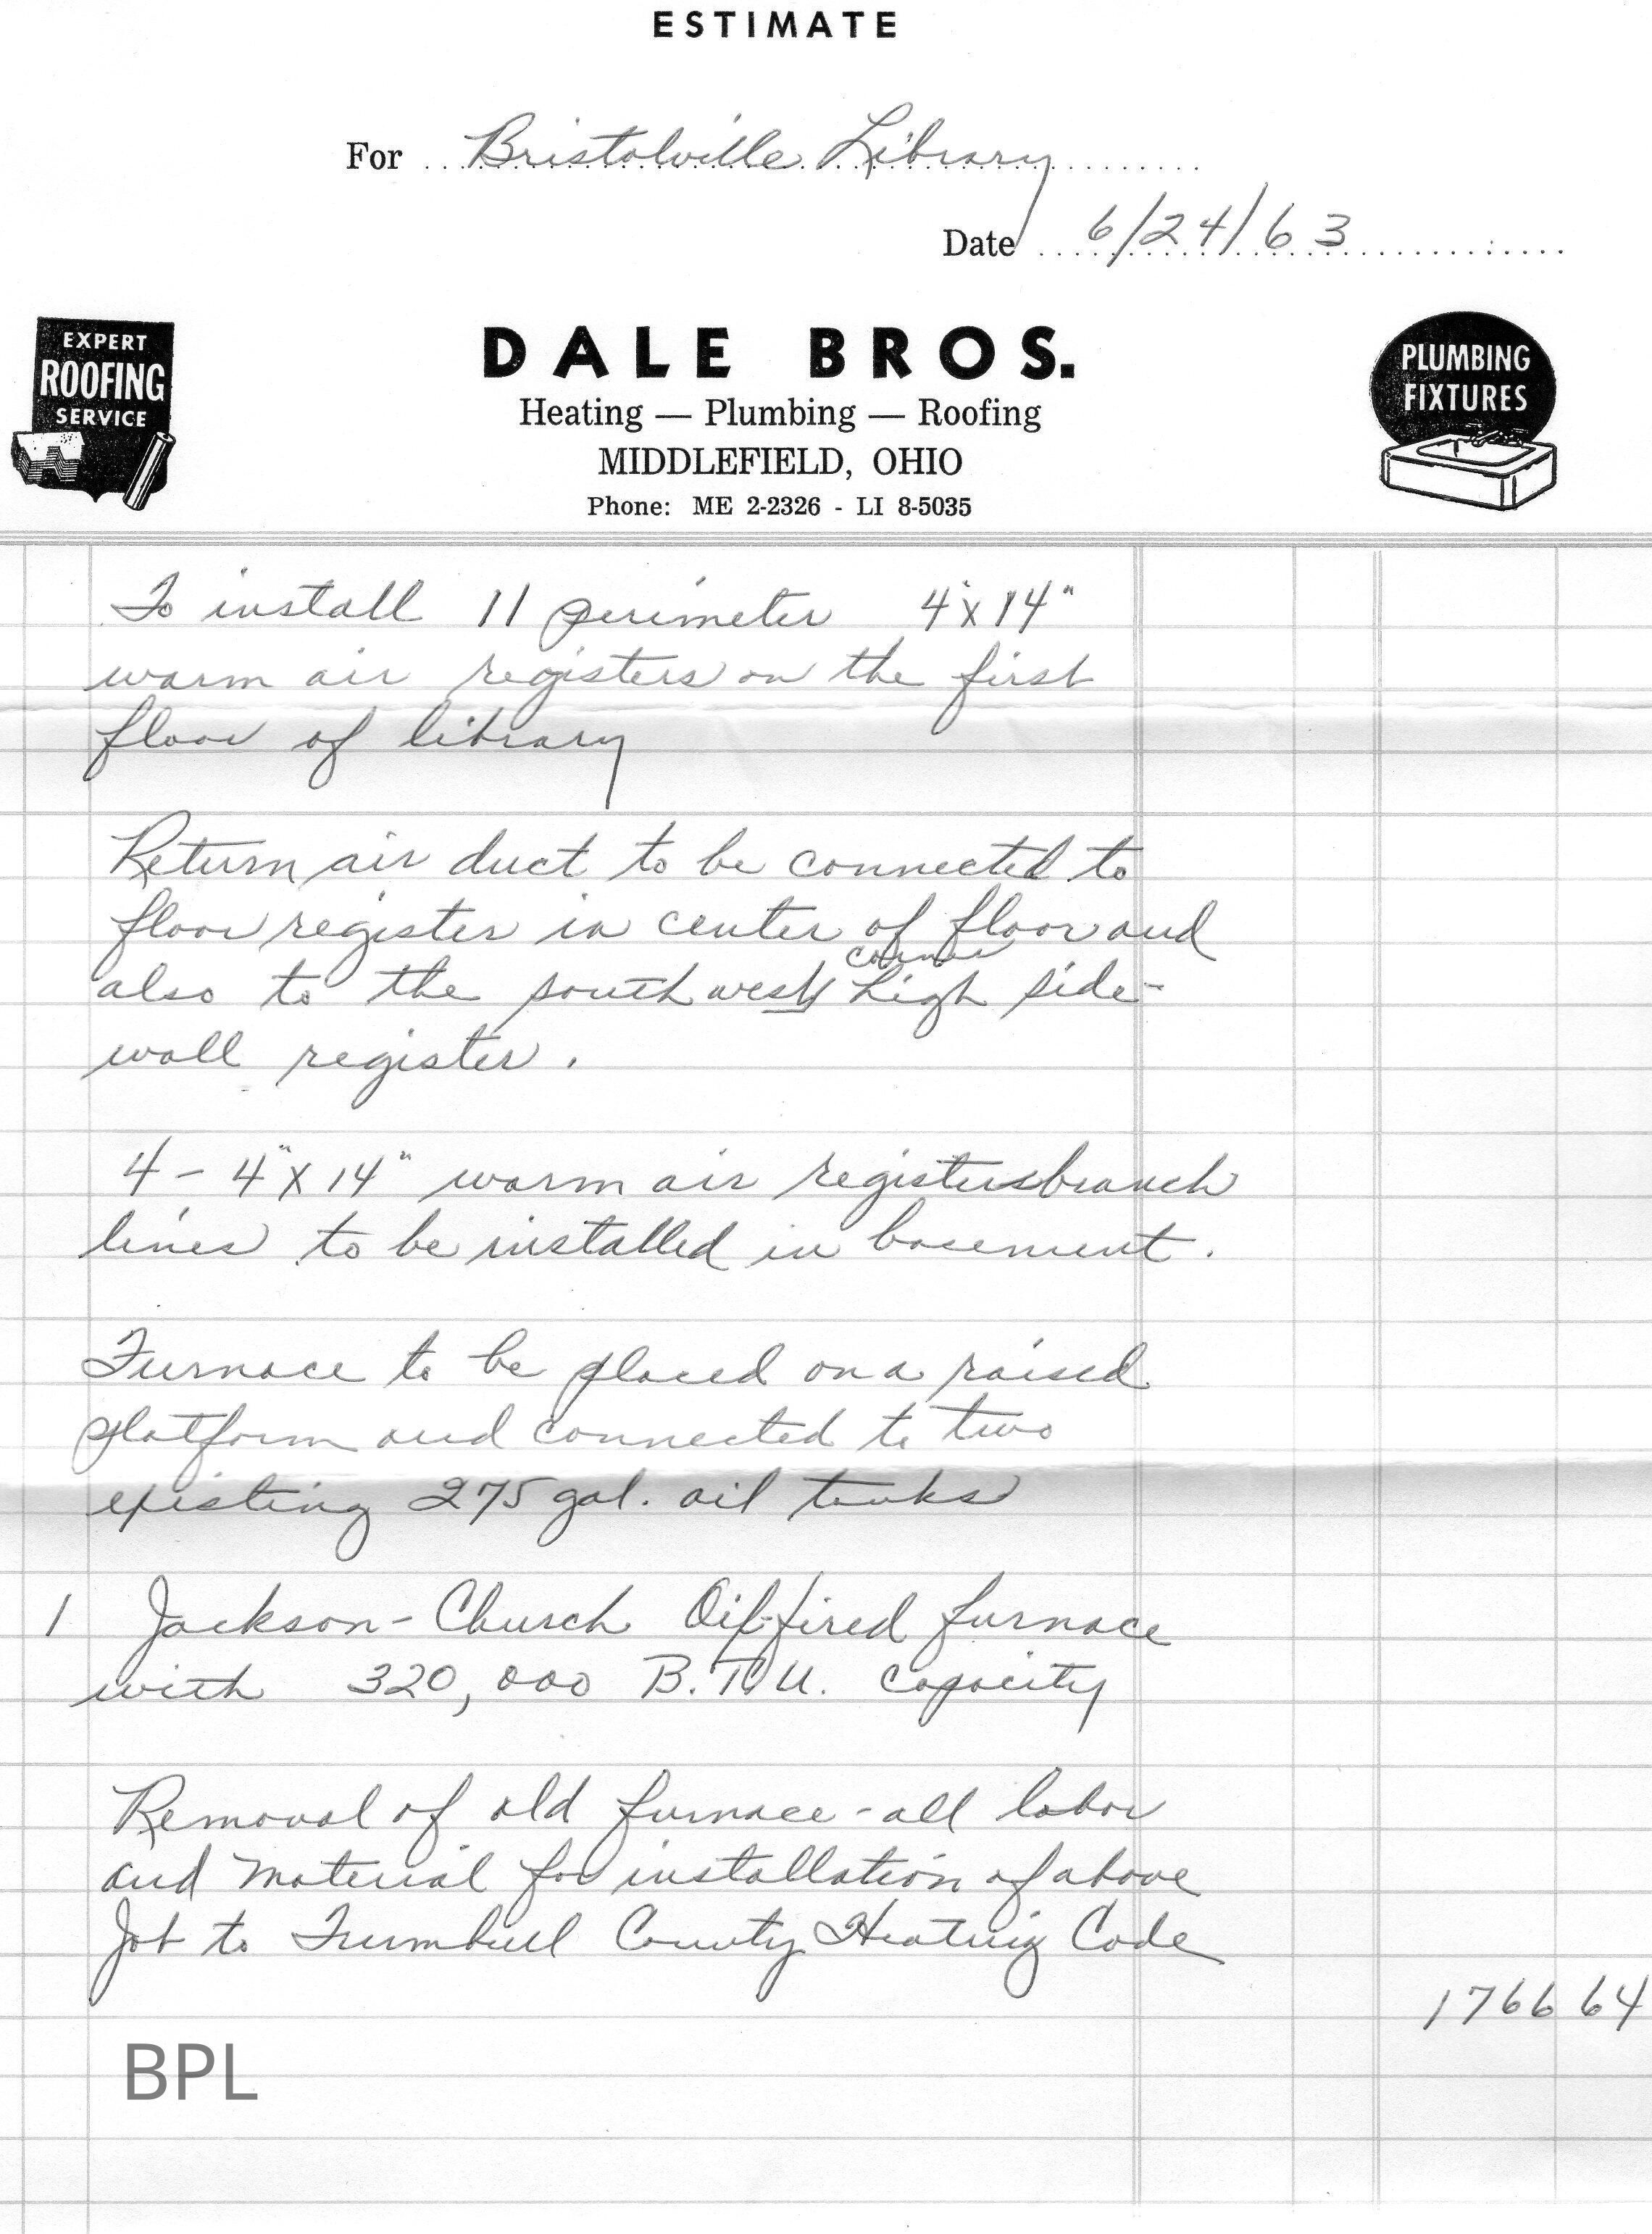 ESTIMATE
For Bristolville Library
Date 6/24/63
EXPERT
ROOFING
SERVICE
DALE BROS.
Heating — Plumbing — Roofing
MIDDLEFIELD, OHIO
Phone: ME 2-2326 - LI 8-5035
PLUMBING
FIXTURES
To install 11 perimeter 4"x14"
warm air registers on the first
floor of library
Return air duct to be connected to
floor register in center of floor and
corner
also to the southwest high side-
wall register.
4 - 4"x14" warm air registers branch
lines to be installed in basement.
Furnace to be placed on a raised
platform and connected to two
existing 275 gal. oil tanks
1 Jackson-Church Oil-fired furnace
with 320,000 B.T.U. capacity
Removal of old furnace - all labor
and material for installation of above
Job to Trumbull County Heating Code
1766 64
BPL